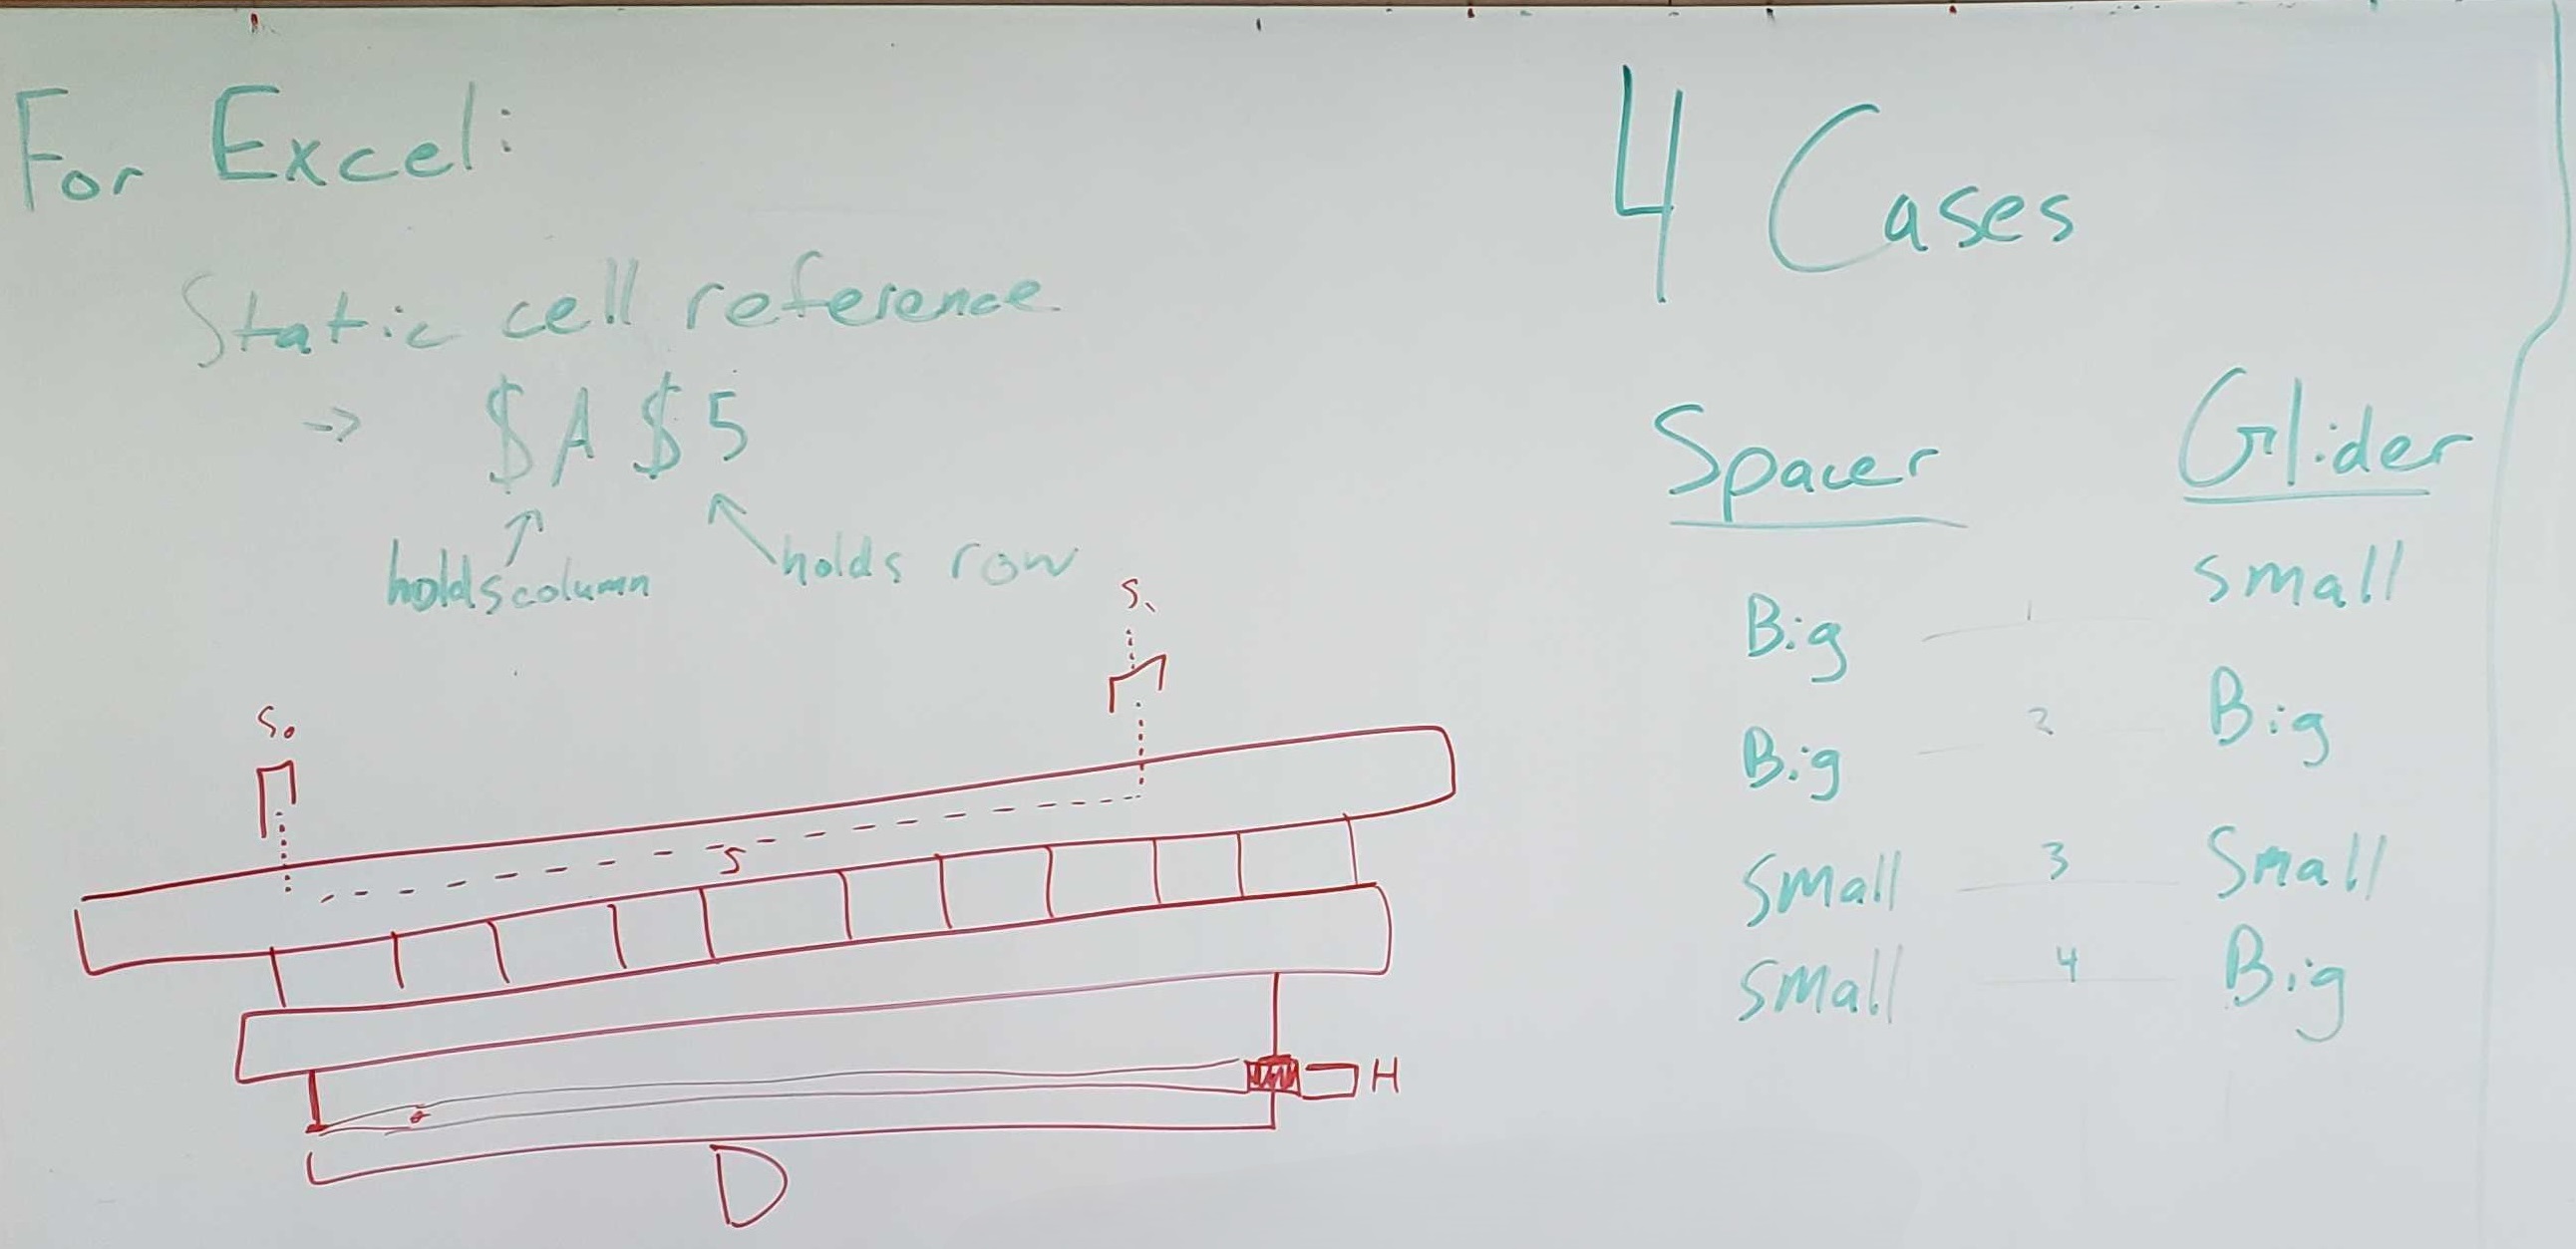 For Excel:
Static cell reference
-> $A $5
holds column
holds row
S₁
S₀
S
H
D
4 Cases
Spacer Glider
Big 1 small
Big 2 Big
Small 3 Small
Small 4 Big